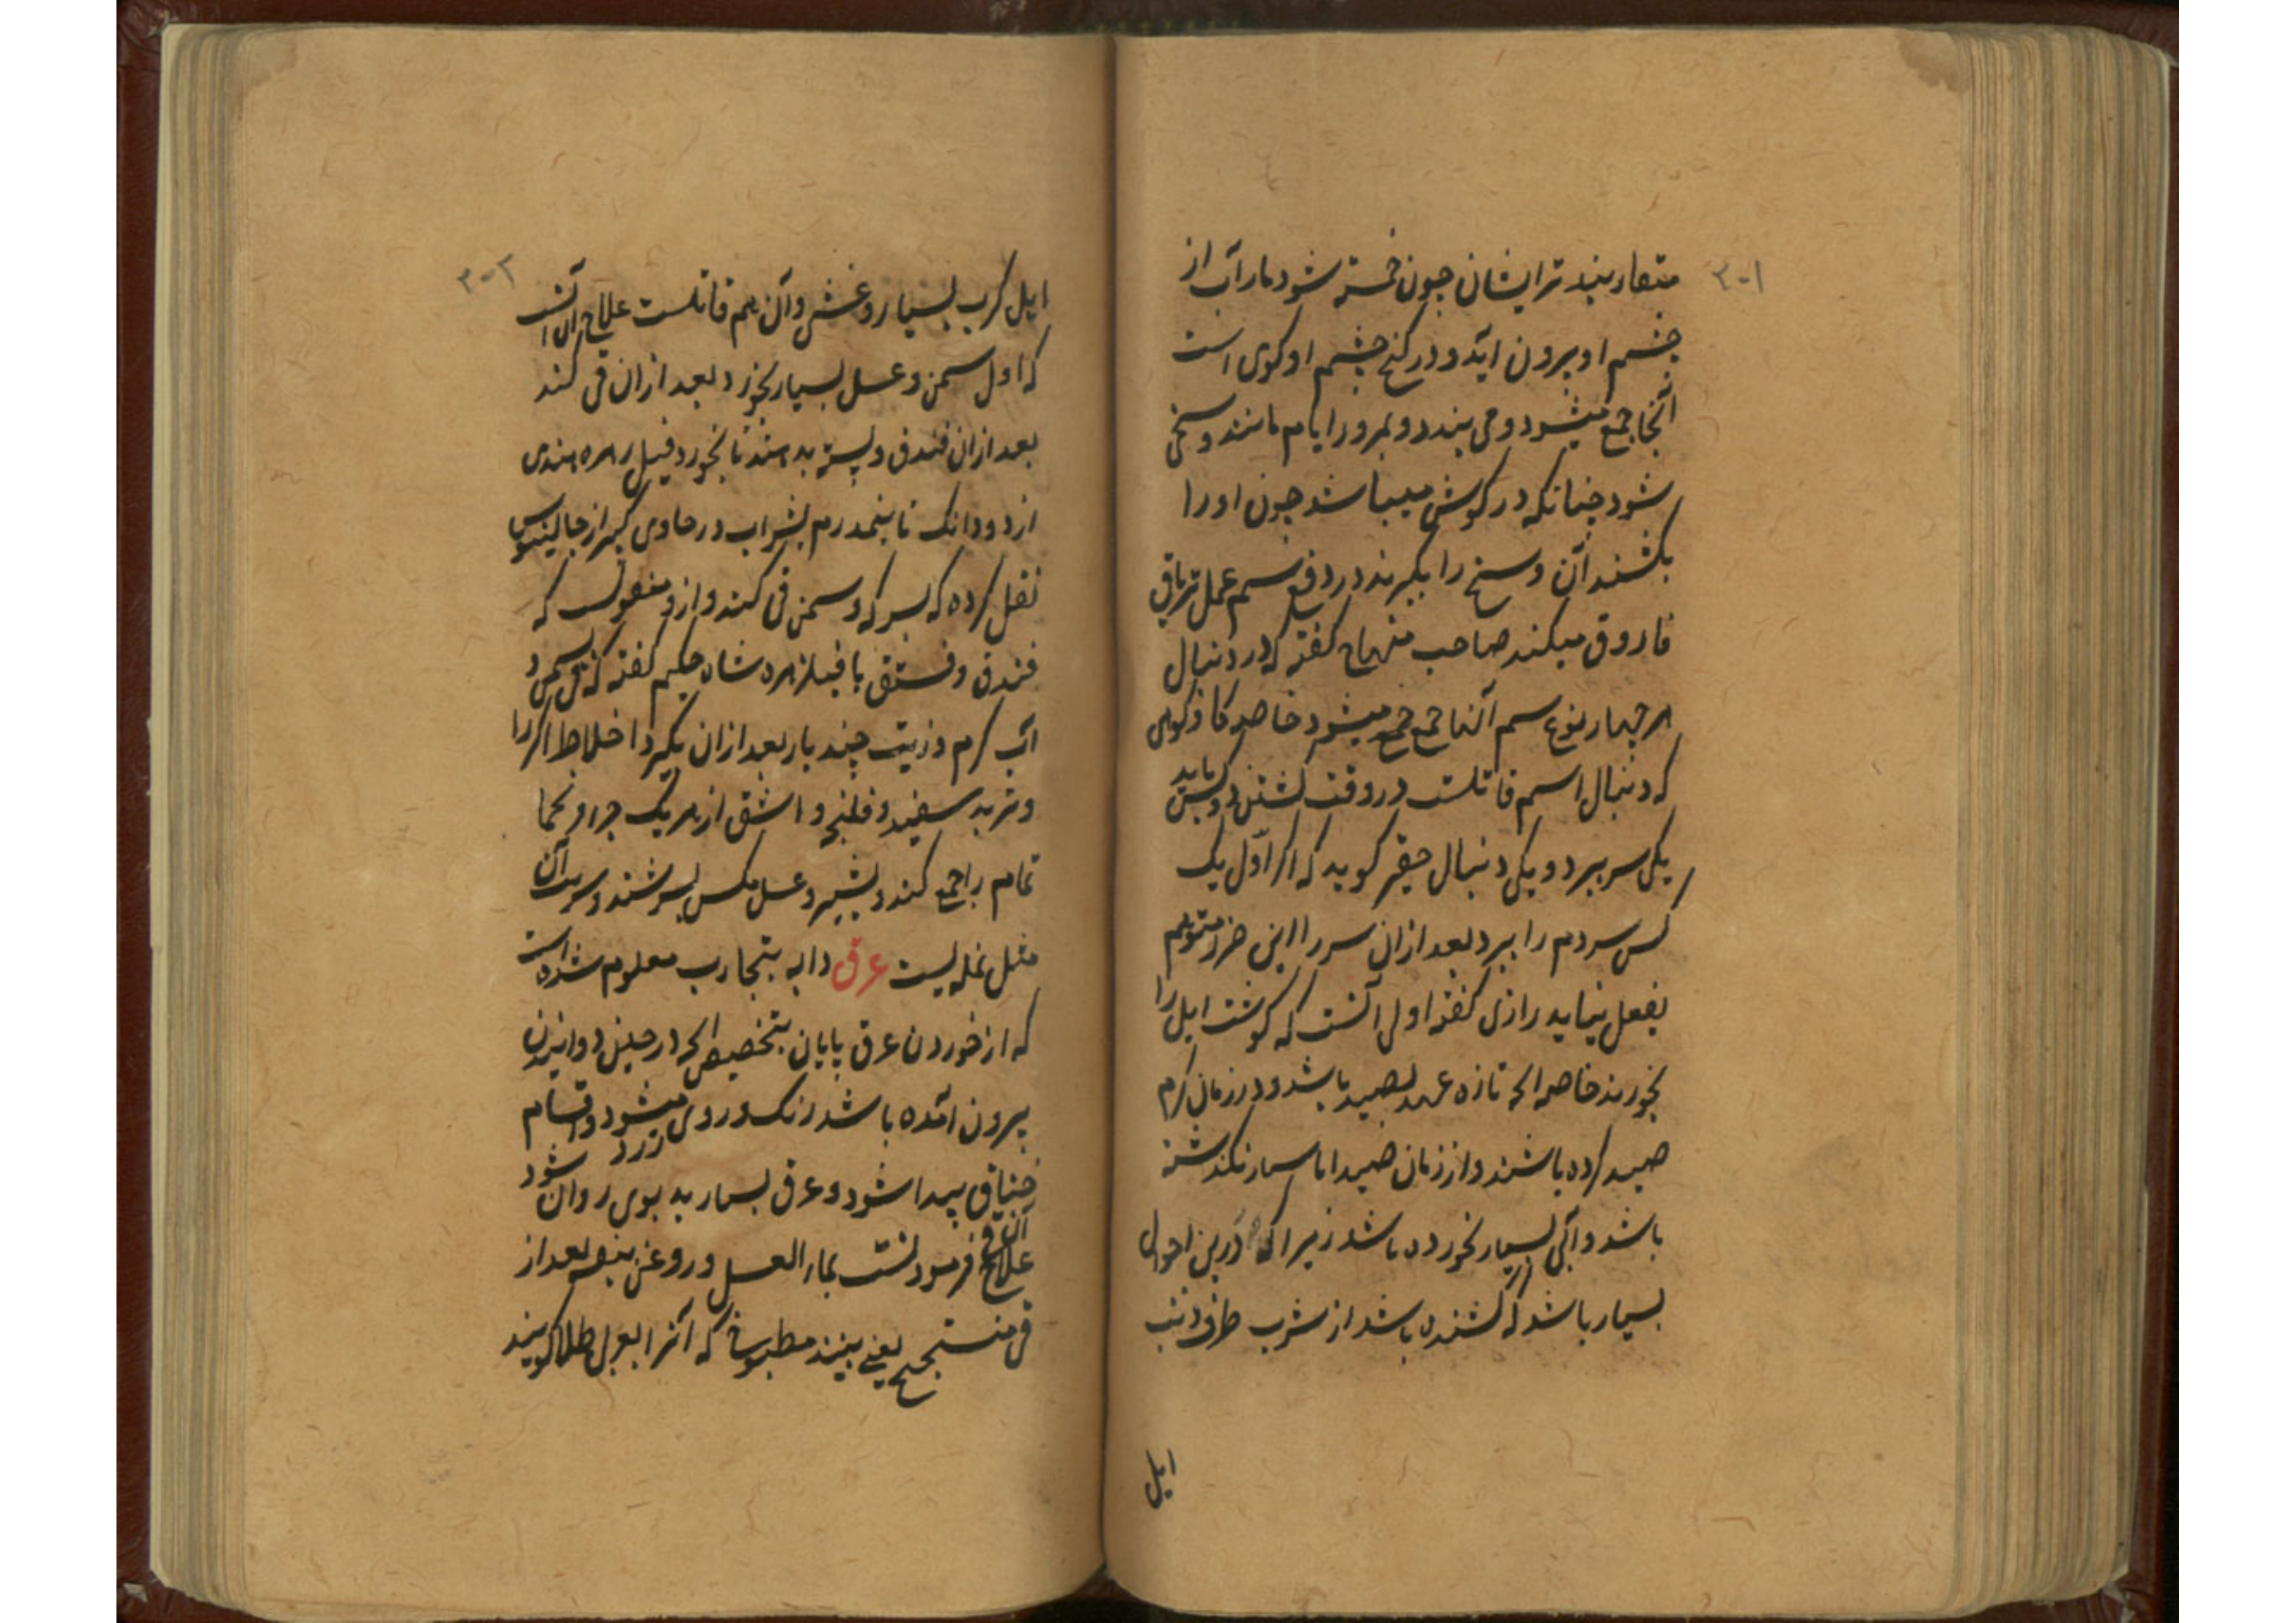 ۳۰۱
متعارینید تر ایشان چون خسته شود مار آب از
چشم او بیرون آید و در کنج چشم او کوی است
آنجا جمع میشود و می بندد و بمرور ایام مانند وسخی
شود چنانکه در کوش میباشد چون او را
بکشند آن وسخ را بگیرند در دفع سم عمل تریاق
فاروق میکند صاحب منهاج کفته که در دنبال
هر چهار نوع سم آنها جمع میشود خاصه کاو کوهی
که دنبال اسم قاتلست در وقت کشتن دو کس باید
یکی سر ببرد و یکی دنبال حقیر کوید که اگر اول یک
کس سردم را ببرد بعد ازان سر را این ضرر متوهم
بفعل نیاید رازی کفته اولی آنست که کوشت ایل را
نخورند خاصه الحه تازه عهد بصید باشد و در زمان کرم
صید کرده باشند و از زمان صید اما بسیار نکذشته
باشد و آبی بسیار نخورده باشد زیرا که درین احوال
بسیار باشد که کشنده باشد از شرب طرف ذنب
ایل
۳۰۲
ایل کرب بسیار و غشی و آن هم قاتلست علاج آن آنست
که اول سمن و عسل بسیار بخورد و بعد ازان قی کند
بعد ازان فندق و پسته بدهند تا بخورد و فیل زهره هندی
از دو دانک تا نیمدرم بشراب در حاوی کبیر از جالینوس
نقل کرده که بسرکه و سمن قی کند و ازو منقولست که
فندق و فستق با فیلزهره شاه حکیم کفته که قی بسمن و
آب کرم و زیت چند بار بعد ازان بگیرد اخلاط اکر را
و تربد سفید و فلنجه و اشق از هر یک جزا و نحما
تمام را جمع کند و بشیر و عسل مکس بسرشند و سربت آن
مثل نمله ایست عرق دابه بتجارب معلوم شده است
که از خوردن عرق پایان بتخصیص الحه در حین دوانیدن
بیرون آمده باشد رنک و روی زرد میشود و اقسام
خناق پیدا شود و عرق بسیار بد بوی روان شود
علاج آن قی فرمودنست بماء العسل و روغن بنفسه بعد از
قی منستجح یعنی ببیند مطبوخا که آنرا بعربی طلا کویند